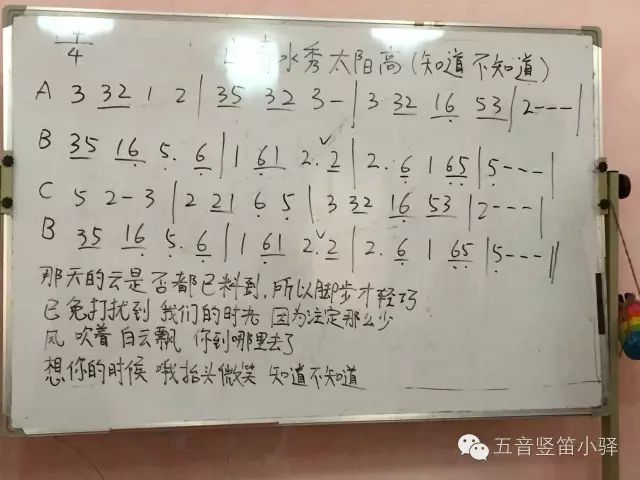 4/4
山青水秀太阳高(知道不知道)
A 3 32 1 2 | 35 32 3 - | 3 32 16 53 | 2 - - - |
B 35 16 5. 6 | 1 61 2. 2 | 2. 6 1 65 | 5 - - - |
C 5 2 - 3 | 2 21 6 5 | 3 32 16 53 | 2 - - - |
B 35 16 5. 6 | 1 61 2. 2 | 2. 6 1 65 | 5 - - - ||
那天的云是否都已料到,所以脚步才轻巧
已免打扰到 我们的时光 因为注定那么少
风 吹着 白云飘 你到哪里去了
想你的时候 哦抬头微笑 知道不知道
五音竖笛小驿